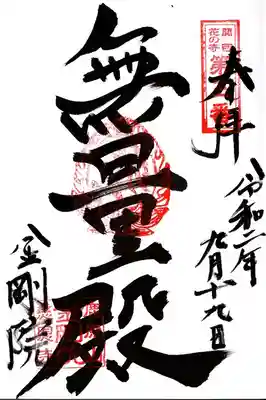 奉拝
関西
花の寺
第
番
令和二年
九月十九日
無量殿
金剛院